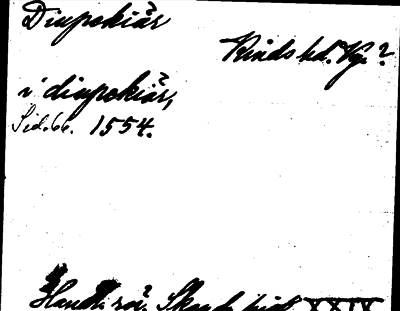 Diupekiär
Kinds hd. Vg.?
i diupekiär,
Sid. 66. 1554.
Handl. rör. Skand. hist. XXIX